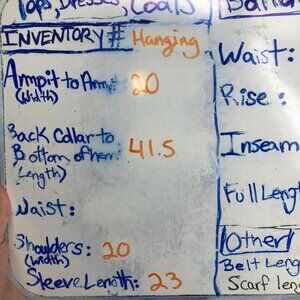 Tops, Dresses, Coats
INVENTORY # Hanging
Armpit to Armpit: 20
(Width)
Back Collar to
Bottom of hem: 41.5
(Length)
Waist:
Shoulders: 20
(Width)
Sleeve Length: 23
Waist:
Rise:
Inseam
Full Leng
Other
Belt Leng
Scarf len